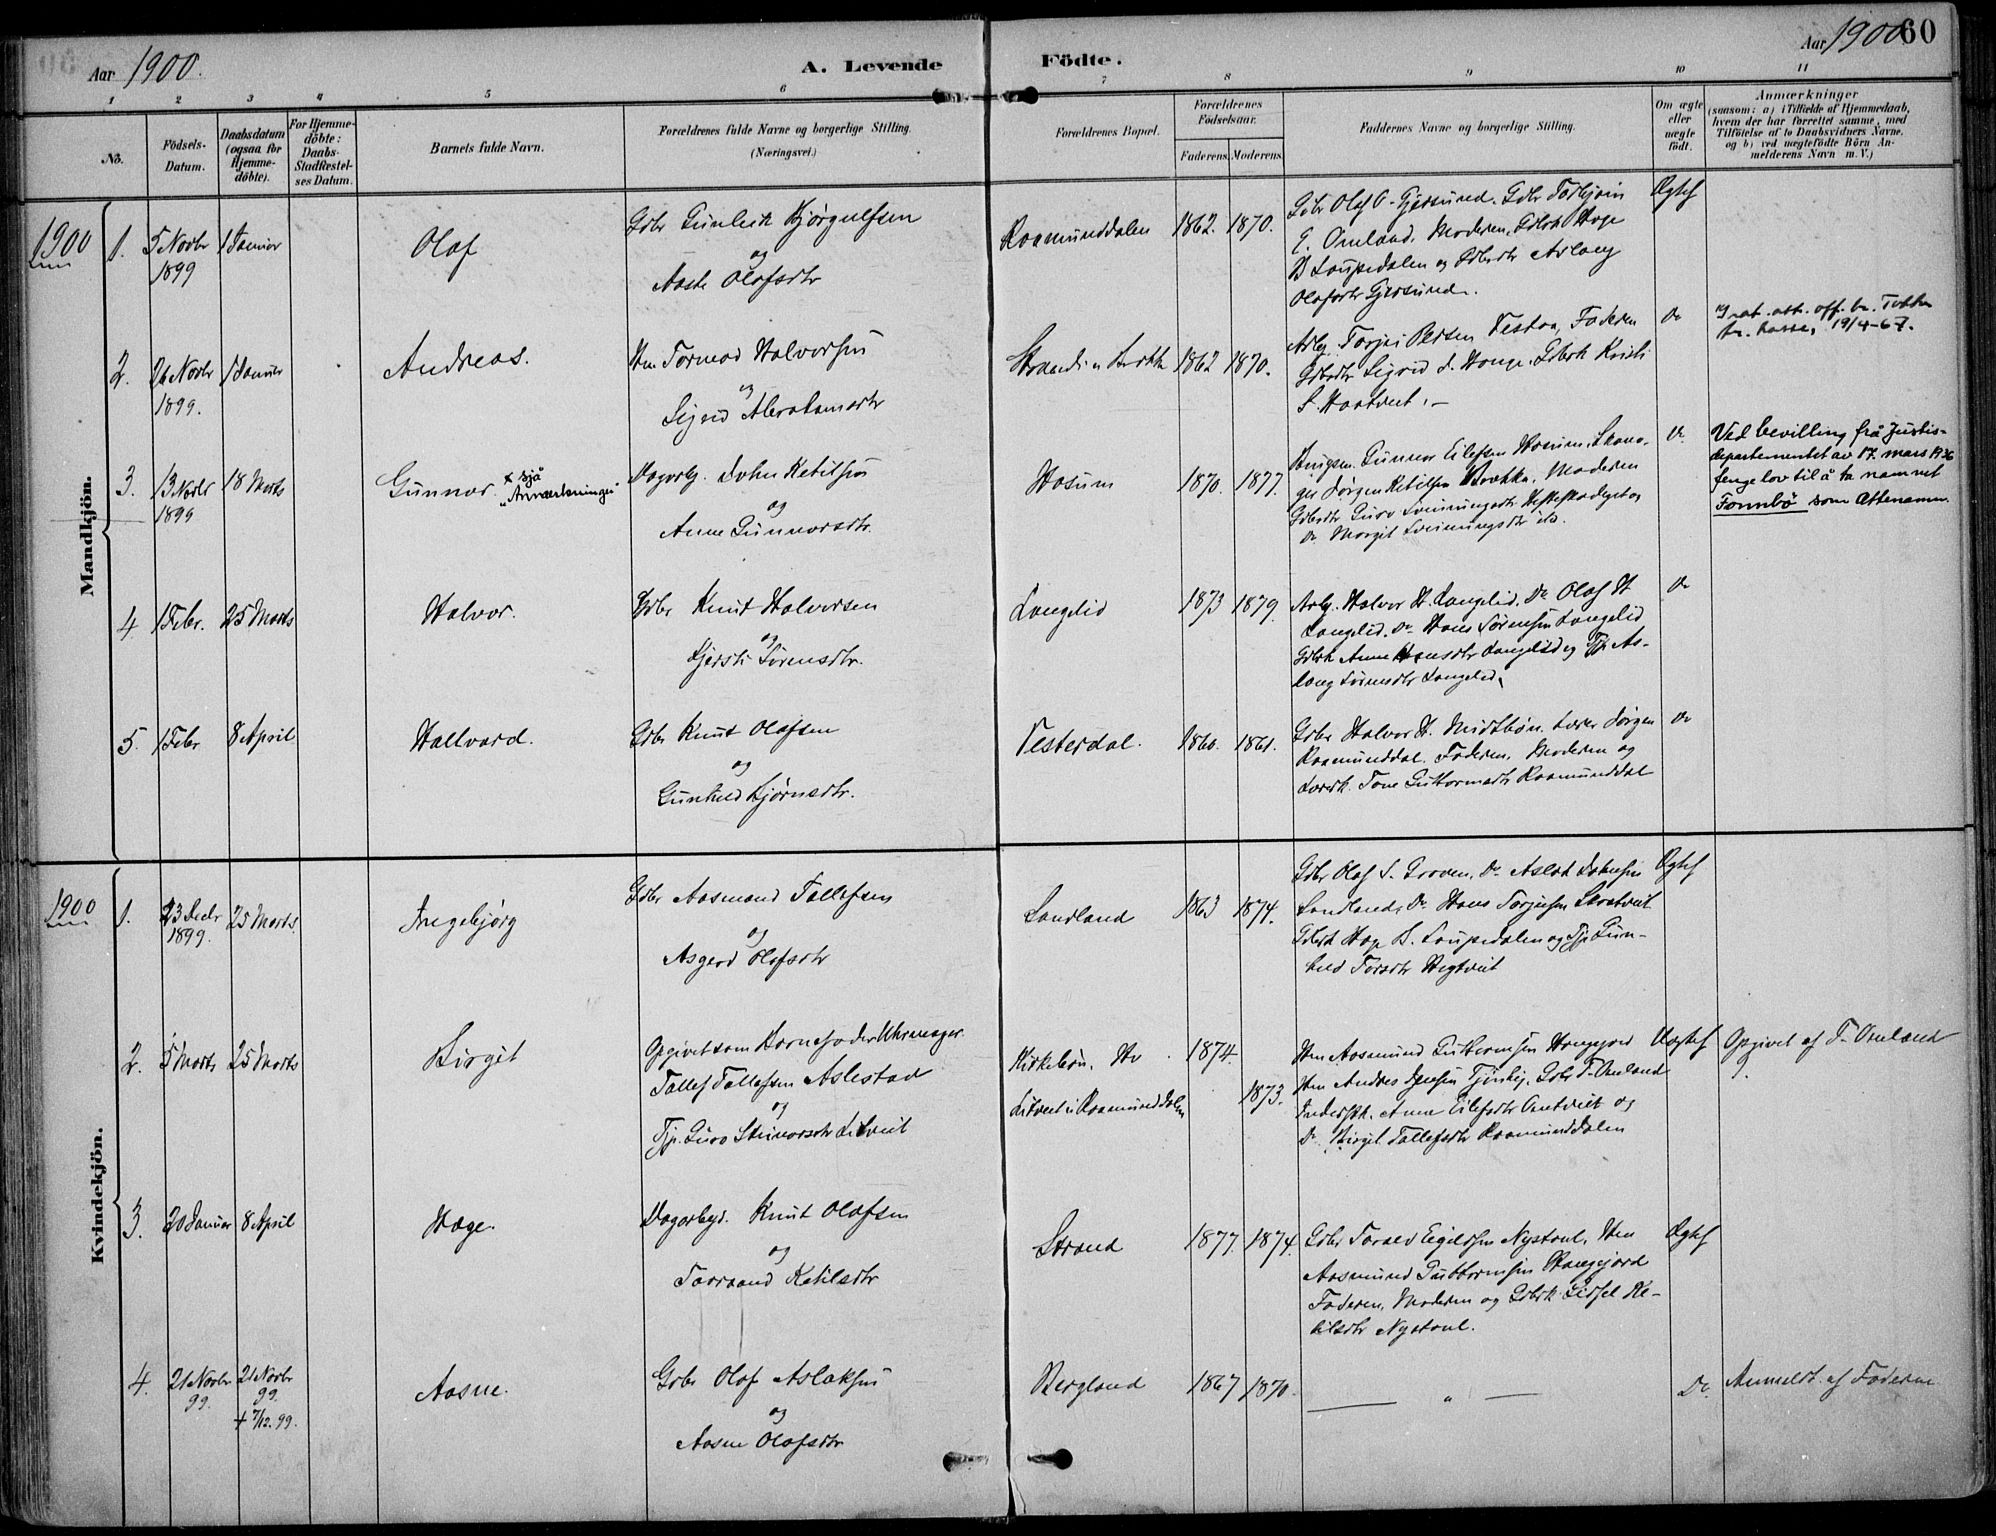 Aar 1900.
A. Levende Födte.
Aar 1900 60
1 2 3 4 5 6 7 8 9 10 11
No.
Födsels-
Datum.
Daabsdatum
(ogsaa for
Hjemme-
döbte).
For Hjemme-
döbte:
Daabs-
Stadfæstel-
ses Datum.
Barnets fulde Navn.
Forældrenes fulde Navne og borgerlige Stilling.
(Næringsvei.)
Forældrenes Bopæl.
Forældrenes
Födselsaar.
Faderens. Moderens.
Faddernes Navne og borgerlige Stilling.
Om ægte
eller
uægte
födt.
Anmærkninger
(saasom: a) i Tilfælde af Hjemmedaab,
hvem der har forrettet samme, med
Tilföielse af to Daabsvidners Navne,
og b) ved uægtefödte Börn An-
melderens Navn m. V.)
Mandkjön.
1900
1. 5 Novbr
1899
1 Januar
Olaf
Gdbr Gunleik Bjørgulfsen
og
Aaste Olafsdtr
Raamunddalen
1862. 1870.
Gdbr Olaf O. Gjersund. Gdbr Torbjørn
G. Omland. Moderen, Gdbrk Hæge
B Loupedalen og Gdbrdtr Aslaug
Olafsdtr Gjersund.
Ægtef
2. 26 Novbr
1899.
1 Januar
Andreas.
Hm. Tormod Halvorsen
og
Sigrid Abrahamsdtr
1862 1870.
Arb. Torjei Persen Vestaa, Faderen
Gdbrdtr Sigrid S. Hauge. Gdbrk Kristi
S. Haatveit. –
Do
19/4-67.
3. 13 Novbr
1899
18 Marts
Gunnar. x sjå
"Anmærkninger"
Dagarb. John Ketilsen
og
Anne Gunnarsdtr.
Hosum
1870. 1877.
Ungsm. Gunnar Eilefsen Hosum.
Jørgen Ketilsen Brække, Moderen
Gdbrdtr Guro Sveinungsdtr
Do Margit Sveinungsdtr
Do
Ved bevilling frå Justis-
departementet av 17. mars 1926
fenge lov til å ta namnet
Fonnbö som ættenamn.
4 1 Febr. 25 Marts
Halvor.
Gdbr Knut Halvorsen
og
Kjersti Sørensdtr.
Langelid
1873 1879.
Arb. Halvor H. Langelid. Do Olaf H
Langelid. Do Hans Sørensen Langelid
Gdbrk Anne Hansdtr Langelid og Tjp. As-
laug Sørensdtr Langelid.
Do
5. 1 Febr 8 April
Hallvard.
Gdbr Knut Olafsen
og
Gunhild Bjørnsdtr.
Vesterdal.
1860. 1861.
Gdbr Halvor H. Midtbøn. Lærer Jørgen
Raamunddal. Faderen, Moderen og
Lærerk. Tone Guttormsdtr Raamunddal
Do
Kvindekjön.
1900
1. 23 Decbr
1899.
25 Marts.
Ingebjørg
Gdbr Aasmund Tallefsen
og
Asgerd Olafsdtr
Sandland
1863 1874.
Gdbr Olaf S. Grooven, Do Aslak Johnsen
Sandland, Do Hans Torjusen Skratveit
Gdbrk Hæge B. Loupedalen og Tjp. Gun-
hild Torsdtr Hegtveit
Ægtef
2. 5 Marts 25 Marts
Birgit
Opgivet som Barnefader Uhrmager
Tallef Tallefsen Aslestad
og
Tjp. Guro Steinarsdtr Litveit
Kirkebøn, Hv
Litveit i Raamunddalen
1874.
1873.
Hm Aasmund Guttormsen Haugejord
Hm Andres Jensen Tjønhej, Gdbr T. Omland
Inderstk. Anne Eilefsdtr Omtveit og
Do Birgit Tallefsdtr Raamunddalen
Uægtef
Opgivet af T. Omland
3. 20 Januar 8 April
Hæge.
Dagarbejd. Knut Olafsen
og
Taaraand Ketilsdtr
Strand
1877. 1874.
Gdbr Torald Eigildsen Nystaul, Hm
Aasmund Guttormsen Haugejord
Faderen, Moderen og Gdbrk Sidsel Ke-
tilsdtr Nystaul.
Ægtef
4. 21 Novbr
99.
21 Novbr
99.
+ 7/12.99.
Aasne.
Gdbr Olaf Aslaksen
og
Aasne Olafsdtr
Bergland
1867 1870.
— " —
Do.
Anmeldt af Faderen